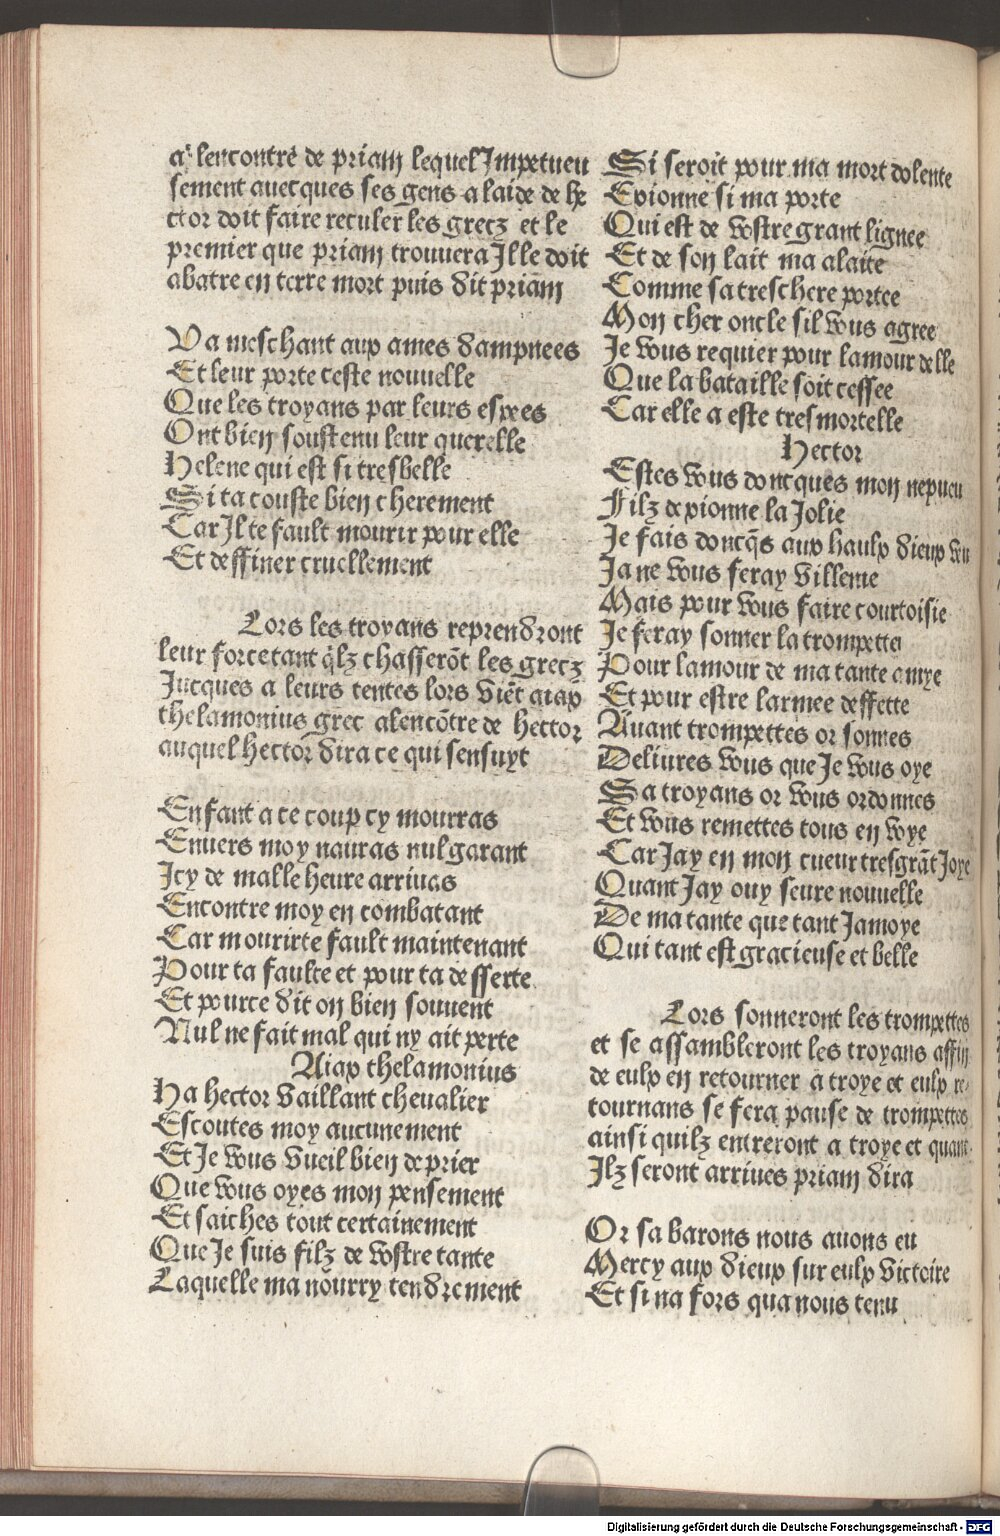 a lencontre de priam lequel Impetueu
sement auecques ses gens a laide de he
ctor doit faire reculer les grecz et le
premier que priam trouuera Ille doit
abatre en terre mort puis dit priam
Va meschant aux ames dampnees
Et leur porte ceste nouuelle
Que les troyans par leurs espees
Ont bien soustenu leur querelle
Helene qui est si tresbelle
Si ta couste bien cherement
Car Il te fault mourir pour elle
Et deffiner cruellement
Lors les troyans reprendront
leur force tant qlz chasserōt les grecz
Jucques a leurs tentes lors viēt aiax
thelamonius grec alencōtre de hector
auquel hector dira ce qui sensuyt
Enfant a ce coup cy mourras
Enuers moy nauras nul garant
Icy de malle heure arriuas
Encontre moy en combatant
Car mourir te fault maintenant
Pour ta faulte et pour ta desserte
Et pource dit on bien souuent
Nul ne fait mal qui ny ait perte
Aiax thelamonius
Ha hector vaillant cheualier
Escoutes moy aucunement
Et Je vous vueil bien deprier
Que vous oyes mon pensement
Et saiches tout certainement
Que Je suis filz de vostre tante
Laquelle ma nourry tendrement
Si seroit pour ma mort dolente
Exionne si ma porte
Qui est de vostre grant lignee
Et de son lait ma alaite
Comme sa treschere portee
Mon cher oncle sil vous agree
Je vous requier pour lamour delle
Que la bataille soit cessee
Car elle a este tres mortelle
Hector
Estes vous doncques mon nepueu
Filz dexionne la Jolie
Je fais doncq̄s aux haulx dieux veu
Ja ne vous feray villenie
Mais pour vous faire courtoisie
Je feray sonner la trompette
Pour lamour de ma tante amye
Et pour estre larmee deffette
Auant trompettes or sonnes
Deliures vous que Je vous oye
Sa troyans or vous ordonnes
Et vous remettes tous en voye
Car Jay en mon cueur tresgrāt Joye
Quant Jay ouy seure nouuelle
De ma tante que tant Jamoye
Qui tant est gracieuse et belle
Lors sonneront les trompettes
et se assambleront les troyans affin
de eulx en retourner a troye et eulx re-
tournans se fera pause de trompettes
ainsi quilz entreront a troye et quant
Ilz seront arriues priam dira
Or sa barons nous auons eu
Mercy aux dieux sur eulx victoire
Et si na fors qua nous tenu
Digitalisierung gefördert durch die Deutsche Forschungsgemeinschaft - DFG